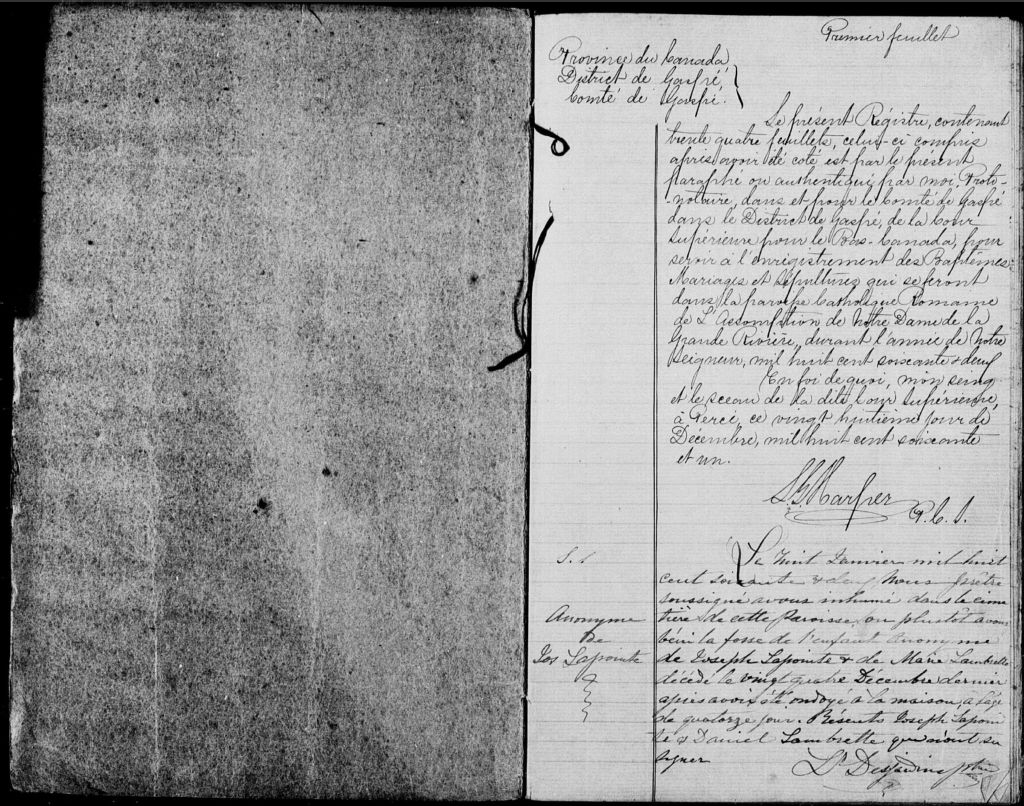 Premier feuillet
Province du Canada
District de Gaspé,
Comté de Gaspé.
Le présent Régistre, contenant
trente quatre feuillets, celui-ci compris
après avoir été coté est par le présent
paraphé ou authentiqué par moi, Proto-
-notaire, dans et pour le Comté de Gaspé
dans le District de Gaspé, de la Cour
Supérieure pour le Bas-Canada, pour
servir à l'enrégistrement des Baptêmes
Mariages et Sépultures qui se feront
dans la paroisse Catholique Romaine
de L'Assomption de Notre Dame de la
Grande Rivière, durant l'année de Notre
Seigneur, mil huit cent soixante & deux
En foi de quoi, mon seing
et le sceau de la dite Cour Supérieure,
à Percé, ce vingt huitième jour de
Décembre, mil huit cent soixante
et un.
P. C. S.
S. 1
Anonyme
De
Jos Lapointe
Le huit Janvier mil huit
cent soixante & deux Nous prêtre
soussigné avons inhumé dans le cime
tière de cette Paroisse, ou plustôt avons
béni la fosse de l'enfant anonyme
de Joseph Lapointe & de Marie Lambrette
décédé le vingt quatre Décembre dernier
après avoir été ondoyé à la maison, à l'age
de quatorze jour. Présents Joseph Lapoin
te & Daniel Lambrette qui n'ont su
signer
Ls Desjardins ptre